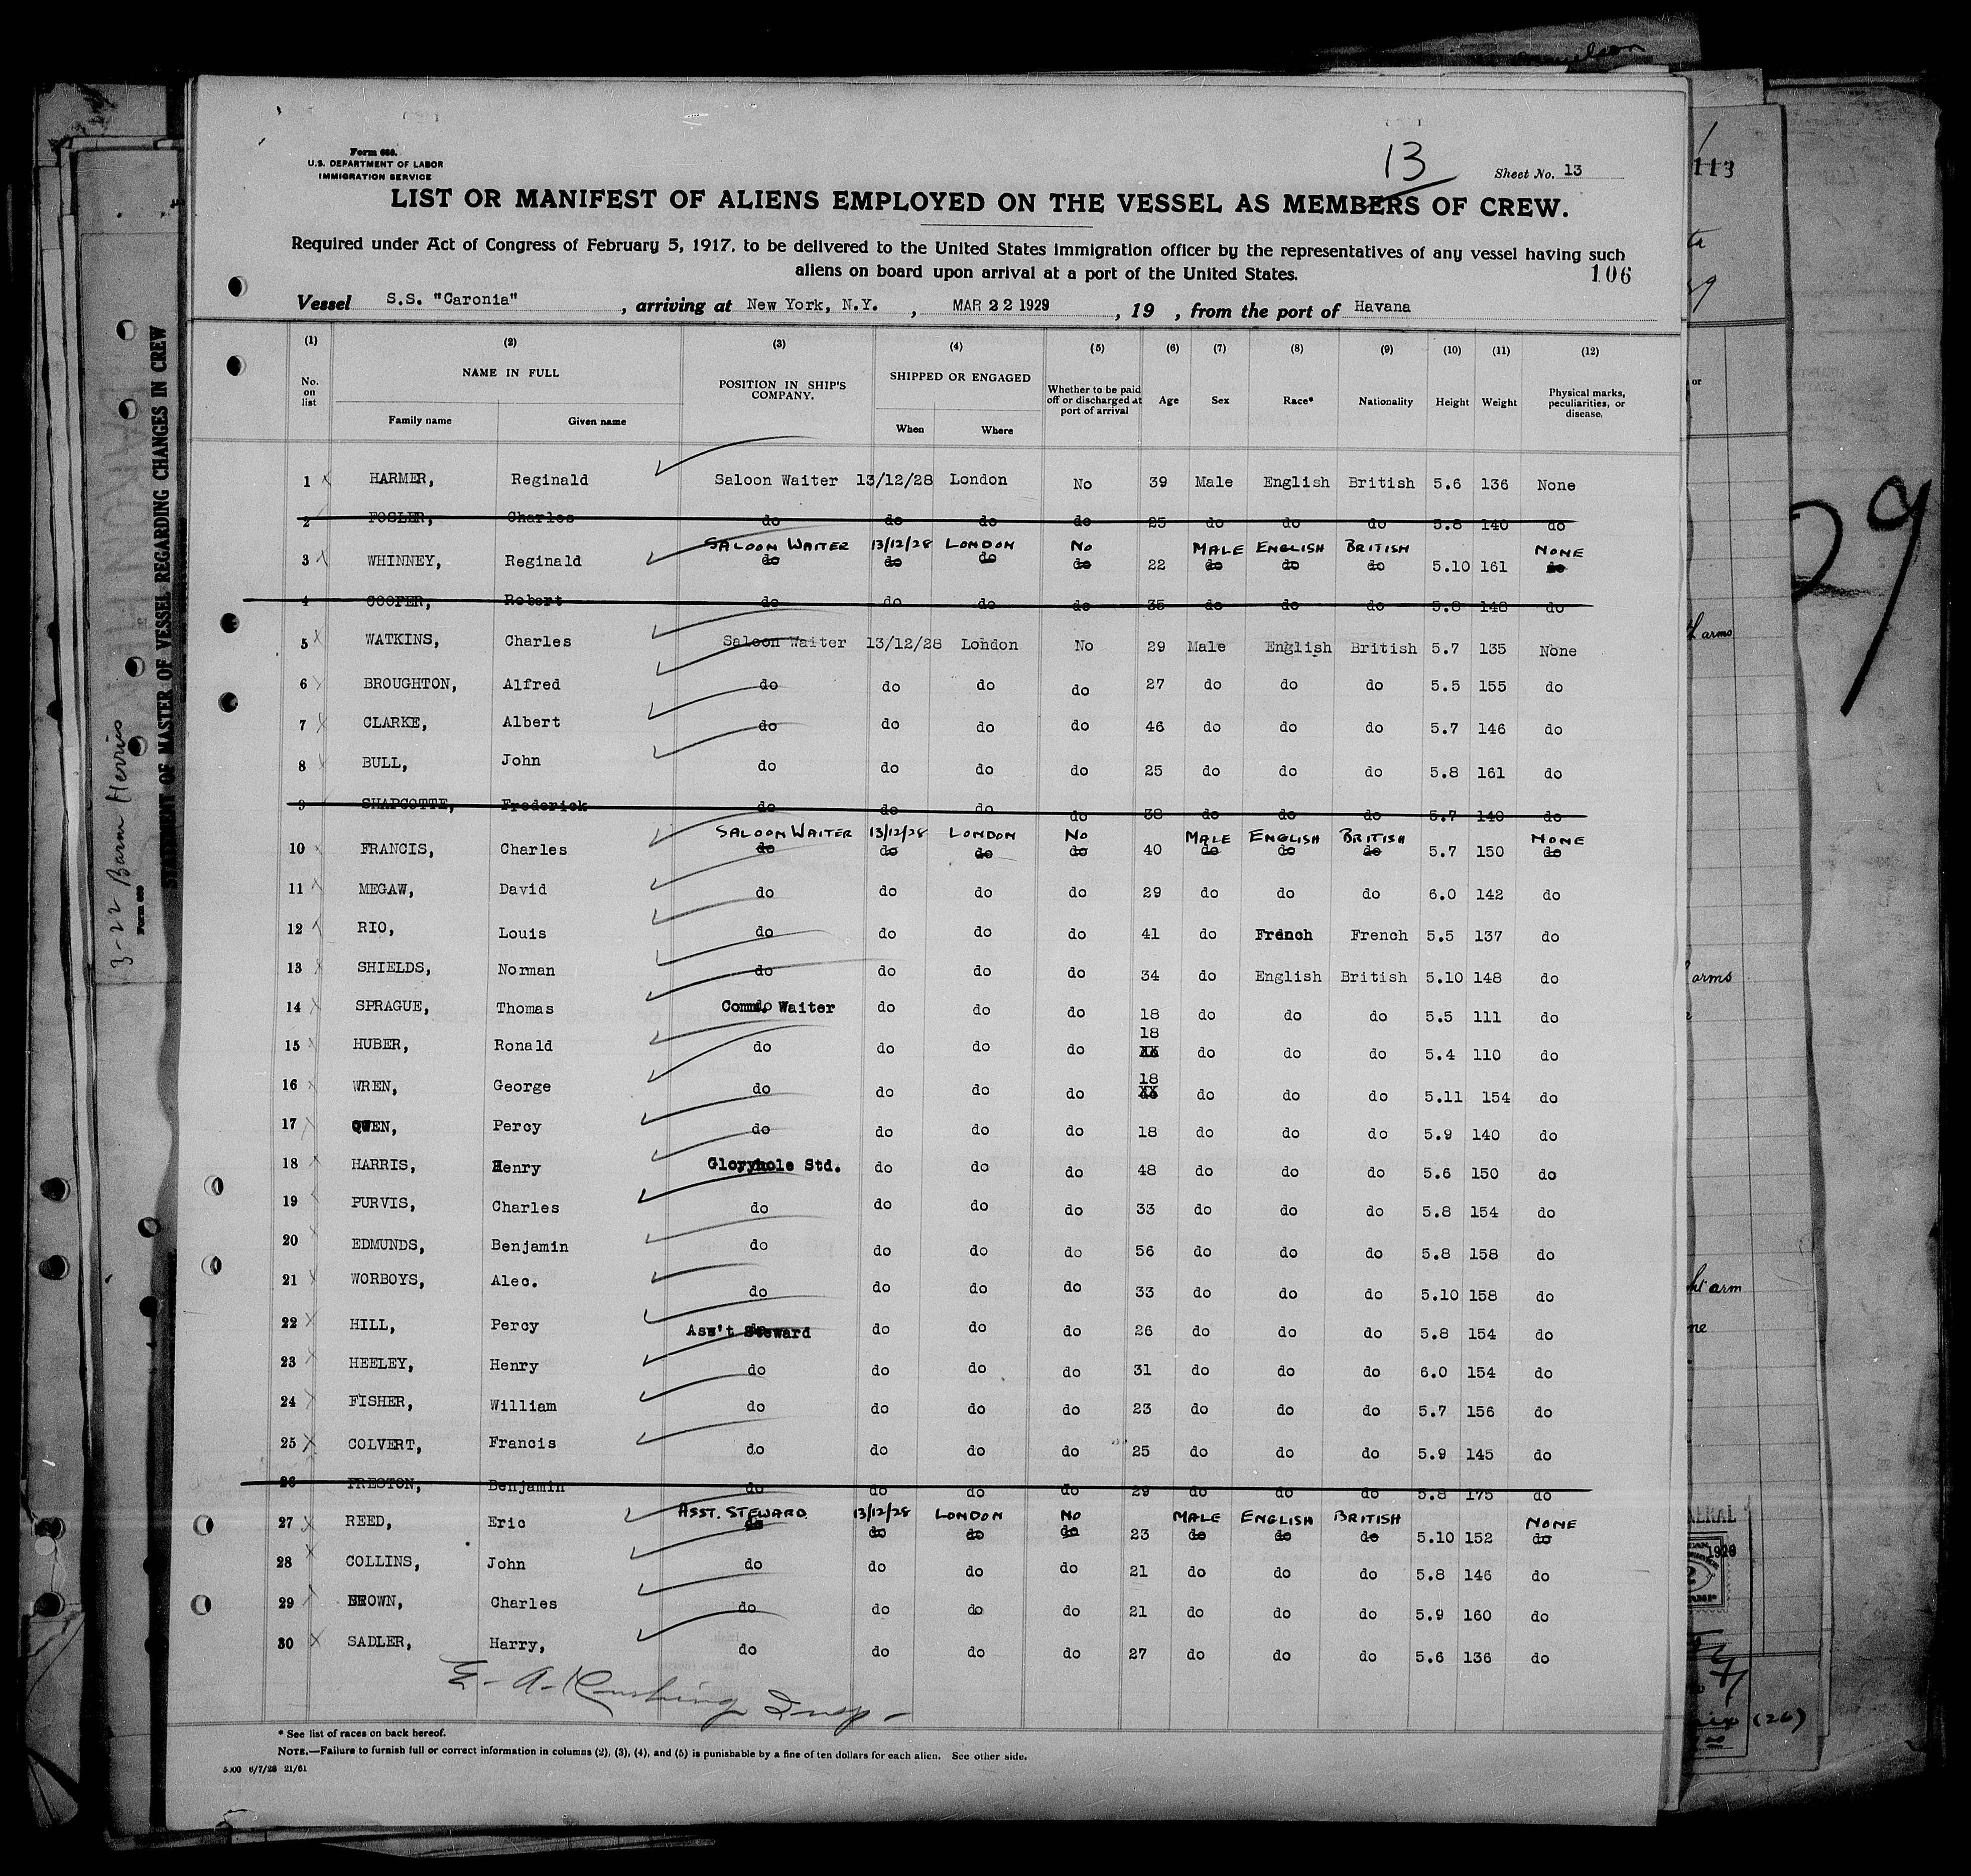 Form 689.
U.S. DEPARTMENT OF LABOR
IMMIGRATION SERVICE
13
Sheet No. 13
LIST OR MANIFEST OF ALIENS EMPLOYED ON THE VESSEL AS MEMBERS OF CREW.
Required under Act of Congress of February 5, 1917, to be delivered to the United States immigration officer by the representatives of any vessel having such
aliens on board upon arrival at a port of the United States.
106
Vessel S.S. "Caronia", arriving at New York, N.Y., MAR 22 1929, 19 , from the port of Havana
(1) (2) (3) (4) (5) (6) (7) (8) (9) (10) (11) (12)
No. on list NAME IN FULL Family name Given name POSITION IN SHIP'S COMPANY. SHIPPED OR ENGAGED When Where Whether to be paid off or discharged at port of arrival Age Sex Race* Nationality Height Weight Physical marks, peculiarities, or disease.
1 HARMER, Reginald Saloon Waiter 13/12/28 London No 39 Male English British 5.6 136 None
2 FOSLER, Charles do do do do 25 do do do 5.8 140 do
SALOON WAITER 13/12/28 LONDON No MALE ENGLISH BRITISH NONE
3 WHINNEY, Reginald do do do do 22 do do do 5.10 161 do
4 COOPER, Robert do do do do 35 do do do 5.8 148 do
5 WATKINS, Charles Saloon Waiter 13/12/28 London No 29 Male English British 5.7 135 None
6 BROUGHTON, Alfred do do do do 27 do do do 5.5 155 do
7 CLARKE, Albert do do do do 46 do do do 5.7 146 do
8 BULL, John do do do do 25 do do do 5.8 161 do
9 SHAPCOTTE, Frederick do do do do 38 do do do 5.7 140 do
SALOON WAITER 13/12/28 LONDON No MALE ENGLISH BRITISH NONE
10 FRANCIS, Charles do do do do 40 do do do 5.7 150 do
11 MEGAW, David do do do do 29 do do do 6.0 142 do
12 RIO, Louis do do do do 41 do French French 5.5 137 do
13 SHIELDS, Norman do do do do 34 do English British 5.10 148 do
14 SPRAGUE, Thomas Comm. Waiter do do do 18 do do do 5.5 111 do
15 HUBER, Ronald do do do do 18 do do do 5.4 110 do
16 WREN, George do do do do 18 do do do 5.11 154 do
17 OWEN, Percy do do do do 18 do do do 5.9 140 do
18 HARRIS, Henry Gloryhole Std. do do do 48 do do do 5.6 150 do
19 PURVIS, Charles do do do do 33 do do do 5.8 154 do
20 EDMUNDS, Benjamin do do do do 56 do do do 5.8 158 do
21 WORBOYS, Alec. do do do do 33 do do do 5.10 158 do
22 HILL, Percy Ass't Steward do do do 26 do do do 5.8 154 do
23 HEELEY, Henry do do do do 31 do do do 6.0 154 do
24 FISHER, William do do do do 23 do do do 5.7 156 do
25 COLVERT, Francis do do do do 25 do do do 5.9 145 do
26 PRESTON, Benjamin do do do do 29 do do do 5.8 175 do
ASST. STEWARD 13/12/28 LONDON No MALE ENGLISH BRITISH NONE
27 REED, Eric do do do do 23 do do do 5.10 152 do
28 COLLINS, John do do do do 21 do do do 5.8 146 do
29 BROWN, Charles do do do do 21 do do do 5.9 160 do
30 SADLER, Harry, do do do do 27 do do do 5.6 136 do
E. A. Rushing Insp-
* See list of races on back hereof.
NOTE.—Failure to furnish full or correct information in columns (2), (3), (4), and (5) is punishable by a fine of ten dollars for each alien. See other side.
6/7/28 21/61
STATEMENT OF MASTER OF VESSEL REGARDING CHANGES IN CREW
3-22
113
29
arms
arms
arm
(26)